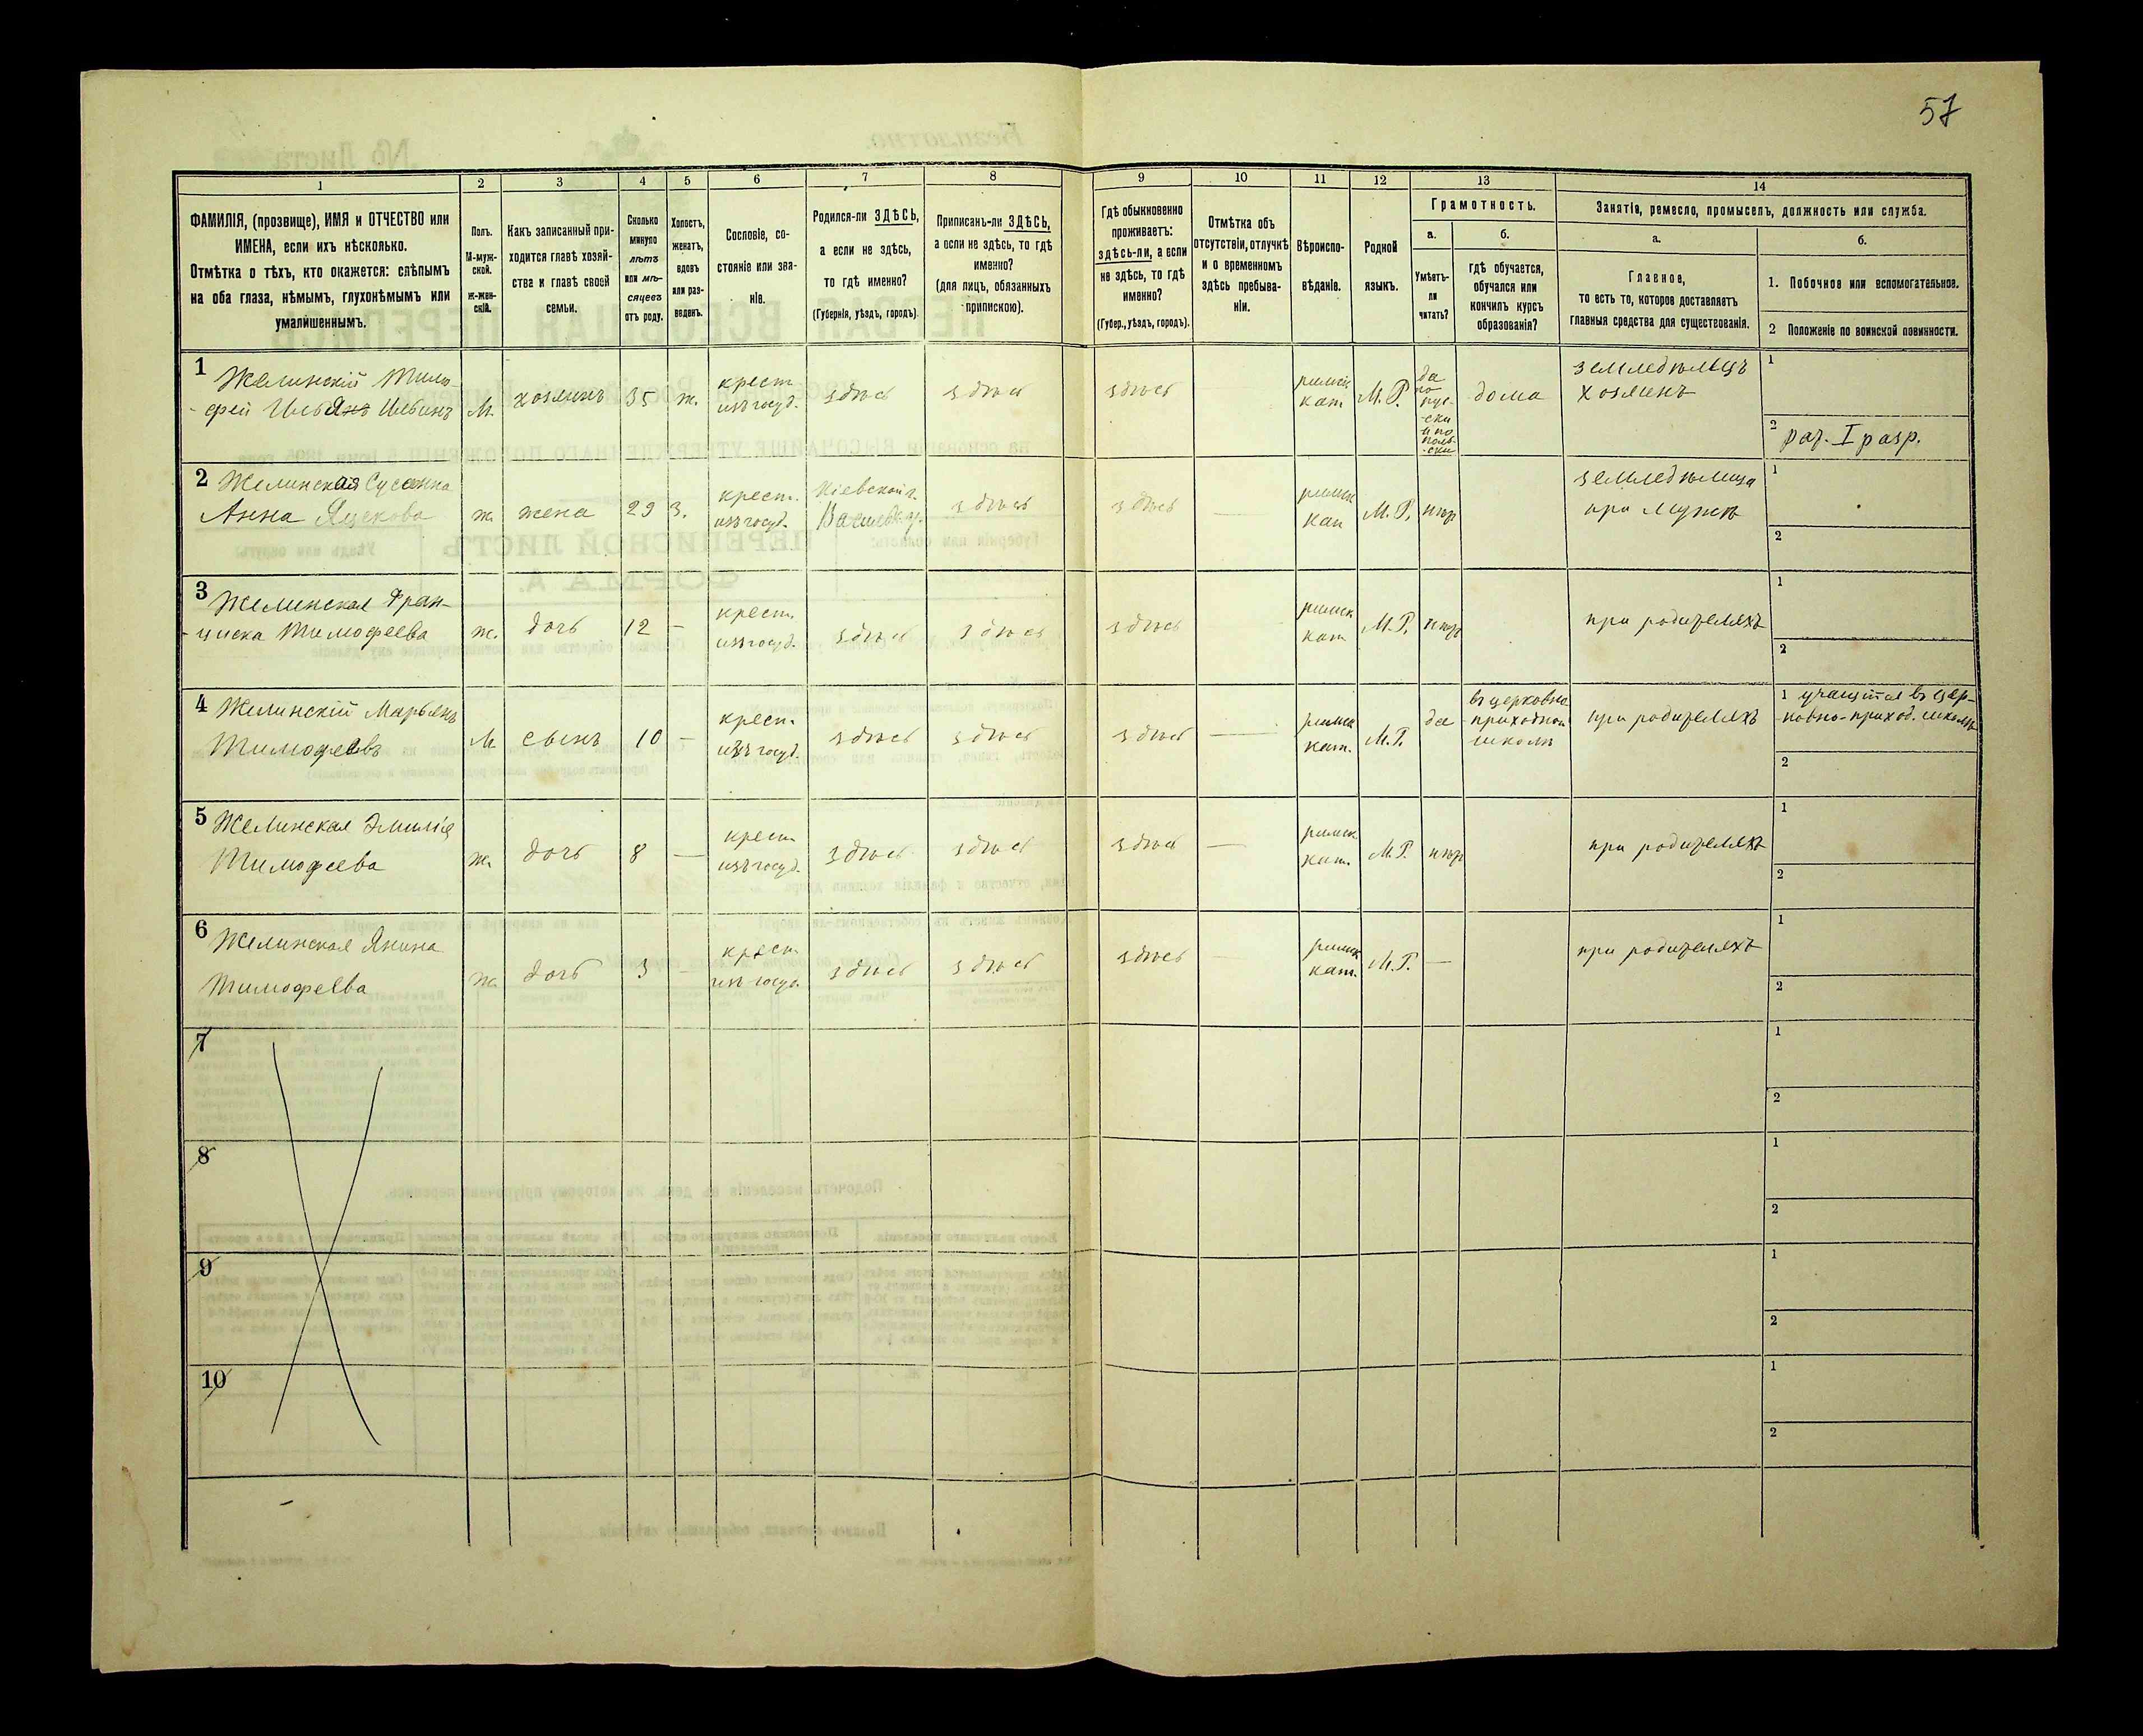 57
1
2
3
4
5
6
7
8
9
10
11
12
13
14
ФАМИЛІЯ, (прозвище), ИМЯ и ОТЧЕСТВО или
ИМЕНА, если ихъ нѣсколько.
Отмѣтка о тѣхъ, кто окажется: слѣпымъ
на оба глаза, нѣмымъ, глухонѣмымъ или
умалишеннымъ.
Полъ.
М-муж-
ской.
ж-жен-
скій.
Какъ записанный при-
ходится главѣ хозяй-
ства и главѣ своей
семьи.
Сколько
минуло
лѣтъ
или мѣ-
сяцевъ
отъ роду.
Холостъ,
женатъ,
вдовъ
или раз-
веденъ.
Сословіе, со-
стояніе или зва-
ніе.
Родился-ли ЗДѢСЬ,
а если не здѣсь,
то гдѣ именно?
(Губернія, уѣздъ, городъ).
Приписанъ-ли ЗДѢСЬ,
а если не здѣсь, то гдѣ
именно?
(для лицъ, обязанныхъ
припискою).
Гдѣ обыкновенно
проживаетъ:
здѣсь-ли, а если
не здѣсь, то гдѣ
именно?
(Губер., уѣздъ, городъ).
Отмѣтка объ
отсутствіи, отлучкѣ
и о временномъ
здѣсь пребыва-
ніи.
Вѣроиспо-
вѣданіе.
Родной
языкъ.
Грамотность.
а.
Умѣетъ-
ли
читать?
б.
гдѣ обучается,
обучался или
кончилъ курсъ
образованія?
Занятіе, ремесло, промыселъ, должность или служба.
а.
Главное,
то есть то, которое доставляетъ
главныя средства для существованія.
б.
1. Побочное или вспомогательное.
2 Положеніе по воинской повинности.
1 Желинскій Тимо-
-фей Ильянъ Ильинъ
М.
хозяинъ
35
ж.
крест.
изъ госуд.
здѣсь
здѣсь
здѣсь
римск
кат
М.Р.
да
по
рус-
-ски
и по
поль-
-ски
дома
земледѣлецъ
хозяинъ
1
2 рат. I разр.
2 Желинская Сусанна
Анна Яцекова
ж.
жена
29
З.
крест.
изъ госуд.
Кіевской г.
здѣсь
здѣсь
римск
кат
М.Р.
нѣт
земледѣлица
при мужѣ
1
2
3 Желинская Фран-
-циска Тимофеева
ж.
дочь
12
-
крест.
изъ госуд.
здѣсь
здѣсь
здѣсь
римск
кат
М.Р.
нѣт
при родителяхъ
1
2
4 Желинскій Марьянъ
Тимофеевъ
М.
сынъ
10
-
крест.
изъ госуд.
здѣсь
здѣсь
здѣсь
римск
кат.
М.Р.
да
въ церковно
-приходной
школѣ
при родителяхъ
1 учащійся въ цер-
-ковно-приход. школѣ
2
5 Желинская Эмилія
Тимофеева
ж.
дочь
8
—
крест
изъ госуд.
здѣсь
здѣсь
здѣсь
римск
кат.
М.Р.
нѣт
при родителяхъ
1
2
6 Желинская Янина
Тимофеева
ж.
дочь
3
-
крест
изъ госуд.
здѣсь
здѣсь
здѣсь
римск
кат.
М.Р.
—
при родителяхъ
1
2
7
1
2
8
1
2
9
1
2
10
1
2